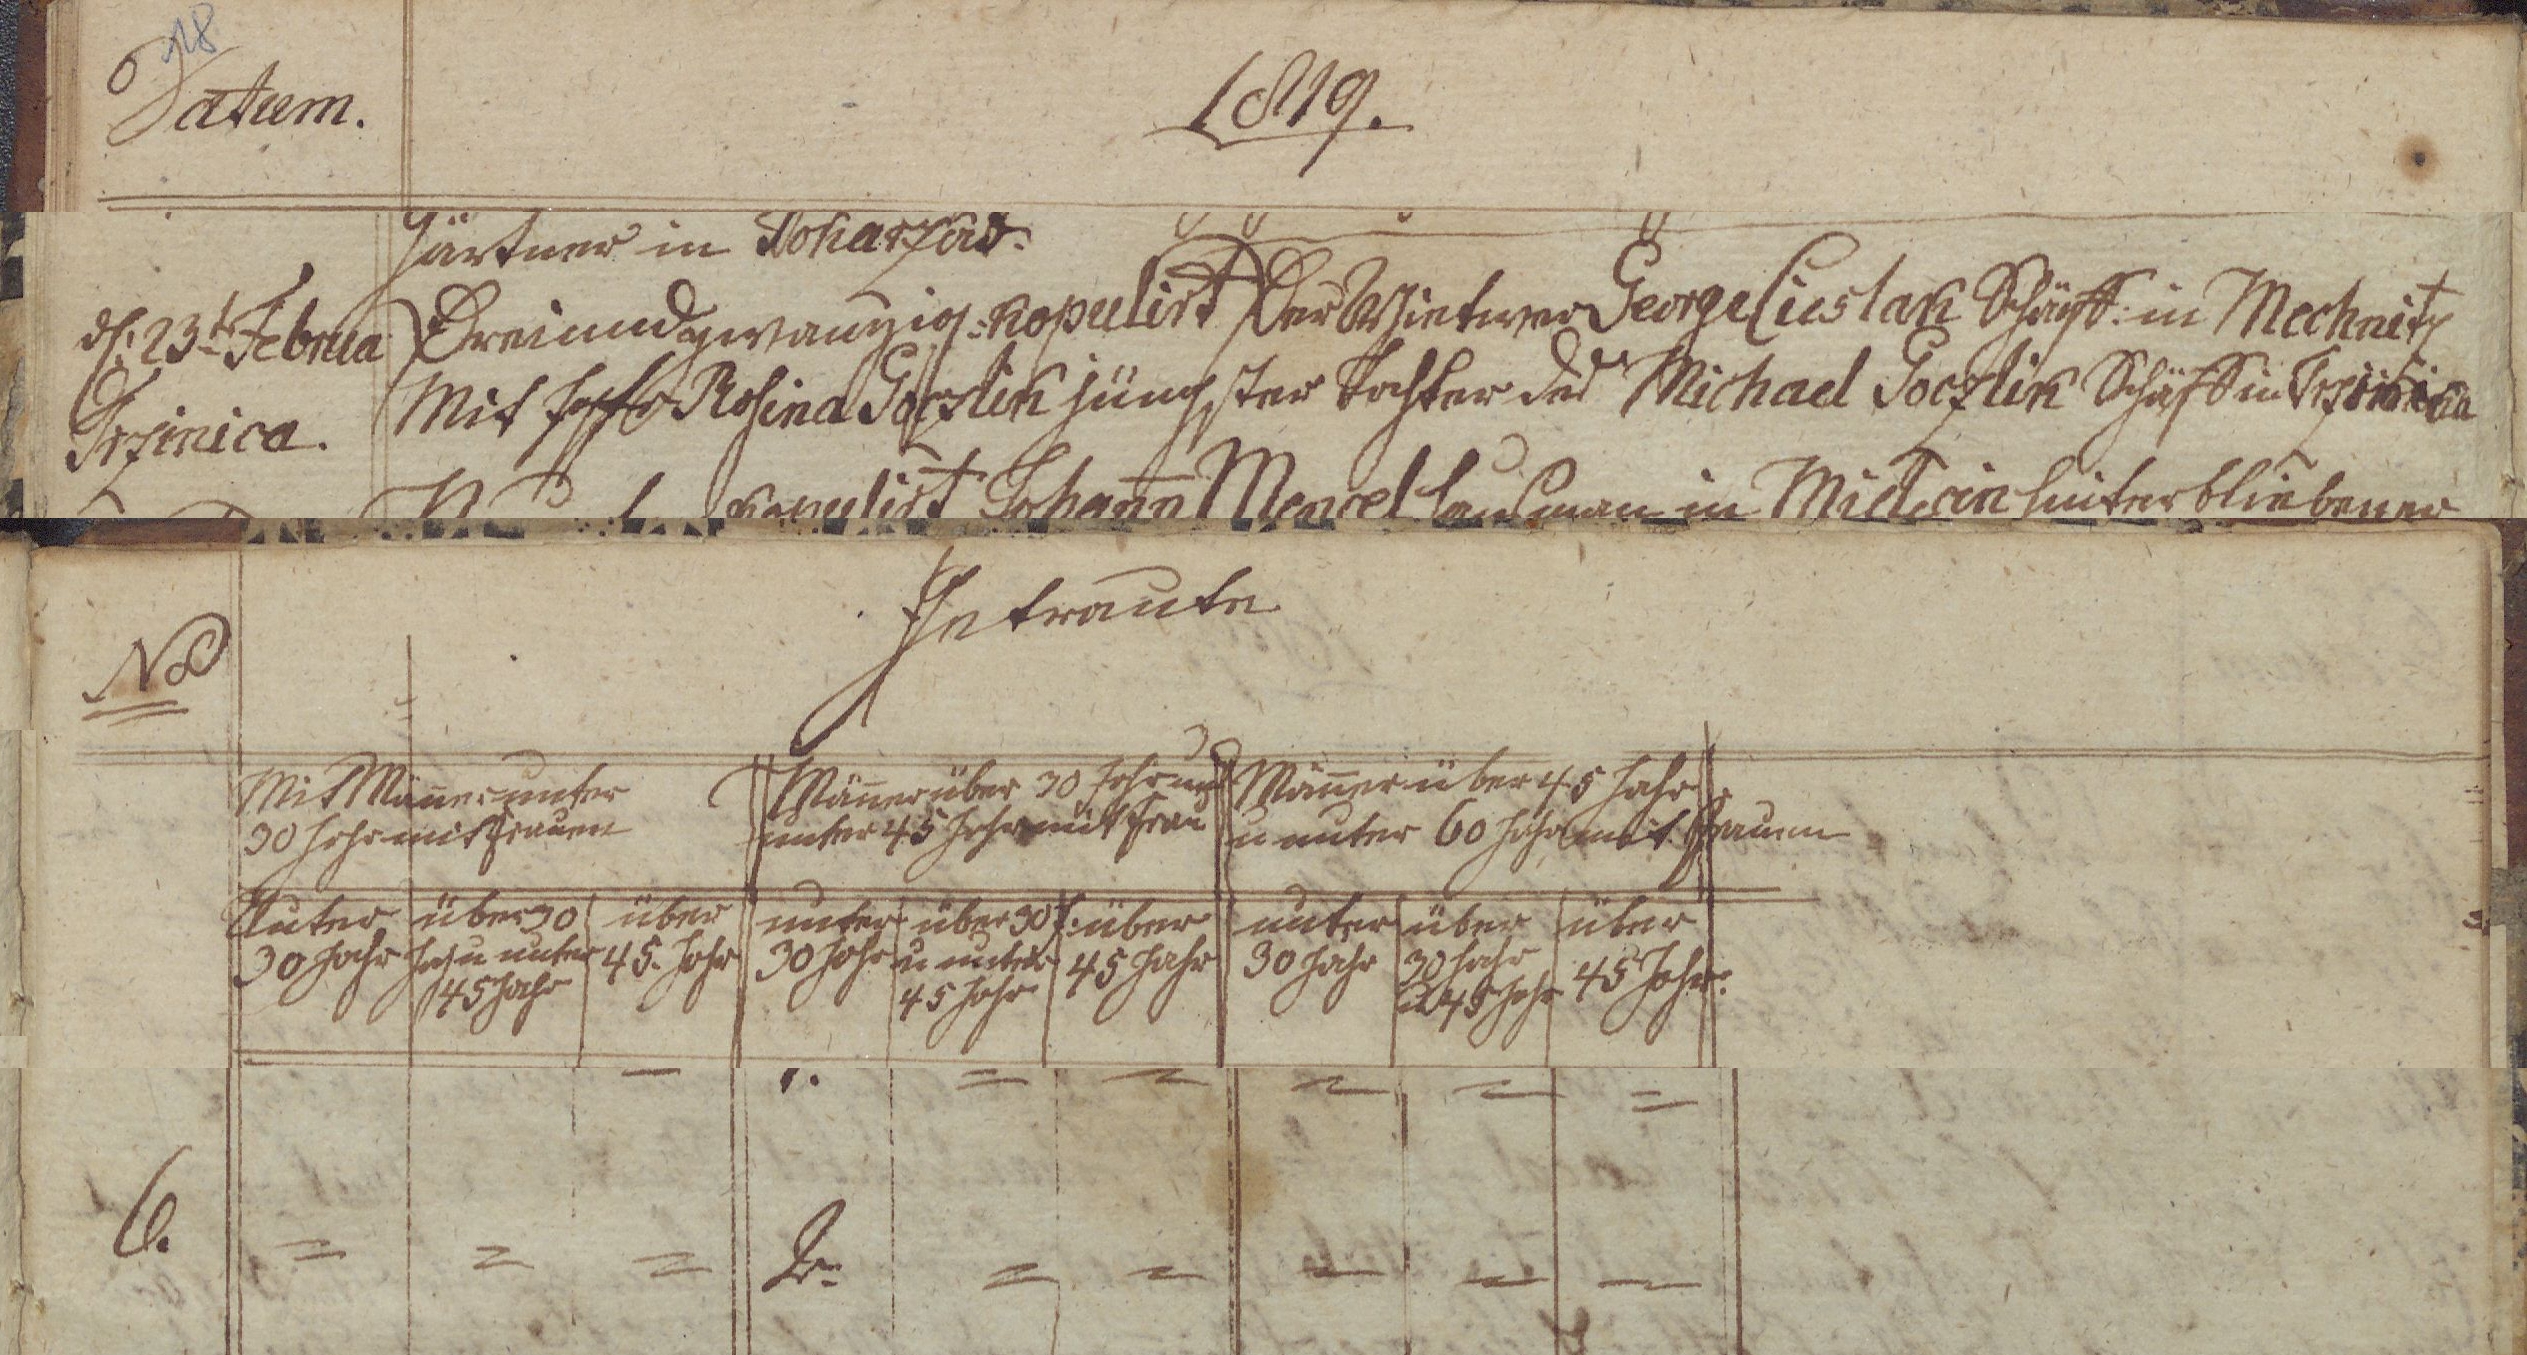 18
Datum.
1819.
Gärtner in Tokarzow.
d. 23t Februa
Trzinica.
Dreiundzwanzig. kopulirt Der Wietwer George Cieslak Schäff: in Mechnitz
Mit Rosina Goczlik jüngster Tochter des Michael Goczlik Schäff in Trzinica
kopulirt Johann Mencel in hinterbliebener
No
Getraute
Mit Männer unter
30 Jahr mit Frauen
Männer über 30 Jahr und
unter 45 Jahr mit Frau
Männer über 45 Jahr
u unter 60 Jahr mit Frauen
Unter
30 Jahr
über 30
Jah u unter
45 Jahr
über
45. Jahr
unter
30 Jahr
über 30 J.
u unter
45 Jahr
über
45 Jahr
unter
30 Jahr
über
30 Jahr
u 45 Jahr
über
45 Jahr.
– 1. = = = = =
6. = = = 2. = = = = –